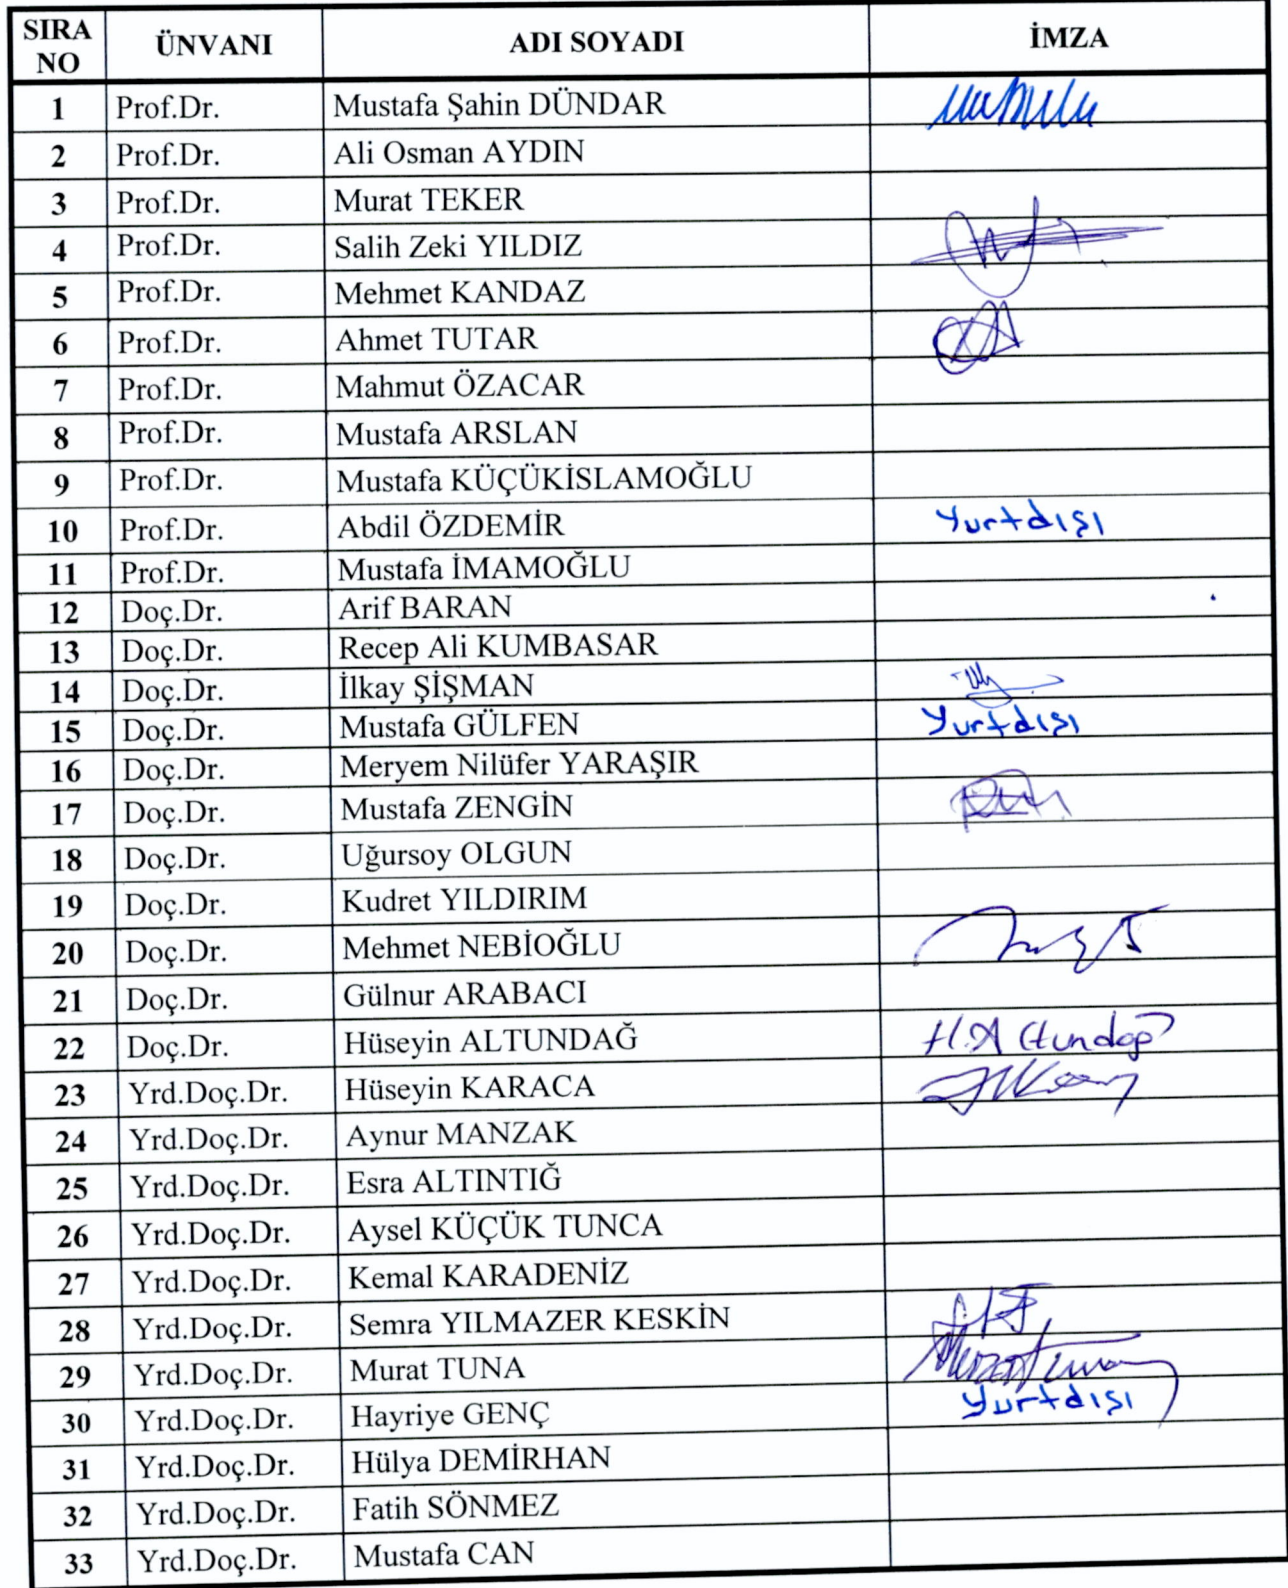 SIRA NO ÜNVANI ADI SOYADI İMZA
1 Prof.Dr. Mustafa Şahin DÜNDAR
2 Prof.Dr. Ali Osman AYDIN
3 Prof.Dr. Murat TEKER
4 Prof.Dr. Salih Zeki YILDIZ
5 Prof.Dr. Mehmet KANDAZ
6 Prof.Dr. Ahmet TUTAR
7 Prof.Dr. Mahmut ÖZACAR
8 Prof.Dr. Mustafa ARSLAN
9 Prof.Dr. Mustafa KÜÇÜKİSLAMOĞLU
10 Prof.Dr. Abdil ÖZDEMİR Yurtdışı
11 Prof.Dr. Mustafa İMAMOĞLU
12 Doç.Dr. Arif BARAN
13 Doç.Dr. Recep Ali KUMBASAR
14 Doç.Dr. İlkay ŞİŞMAN
15 Doç.Dr. Mustafa GÜLFEN Yurtdışı
16 Doç.Dr. Meryem Nilüfer YARAŞIR
17 Doç.Dr. Mustafa ZENGİN
18 Doç.Dr. Uğursoy OLGUN
19 Doç.Dr. Kudret YILDIRIM
20 Doç.Dr. Mehmet NEBİOĞLU
21 Doç.Dr. Gülnur ARABACI
22 Doç.Dr. Hüseyin ALTUNDAĞ H.Altundağ
23 Yrd.Doç.Dr. Hüseyin KARACA
24 Yrd.Doç.Dr. Aynur MANZAK
25 Yrd.Doç.Dr. Esra ALTINTIĞ
26 Yrd.Doç.Dr. Aysel KÜÇÜK TUNCA
27 Yrd.Doç.Dr. Kemal KARADENİZ
28 Yrd.Doç.Dr. Semra YILMAZER KESKİN
29 Yrd.Doç.Dr. Murat TUNA
30 Yrd.Doç.Dr. Hayriye GENÇ Yurtdışı
31 Yrd.Doç.Dr. Hülya DEMİRHAN
32 Yrd.Doç.Dr. Fatih SÖNMEZ
33 Yrd.Doç.Dr. Mustafa CAN